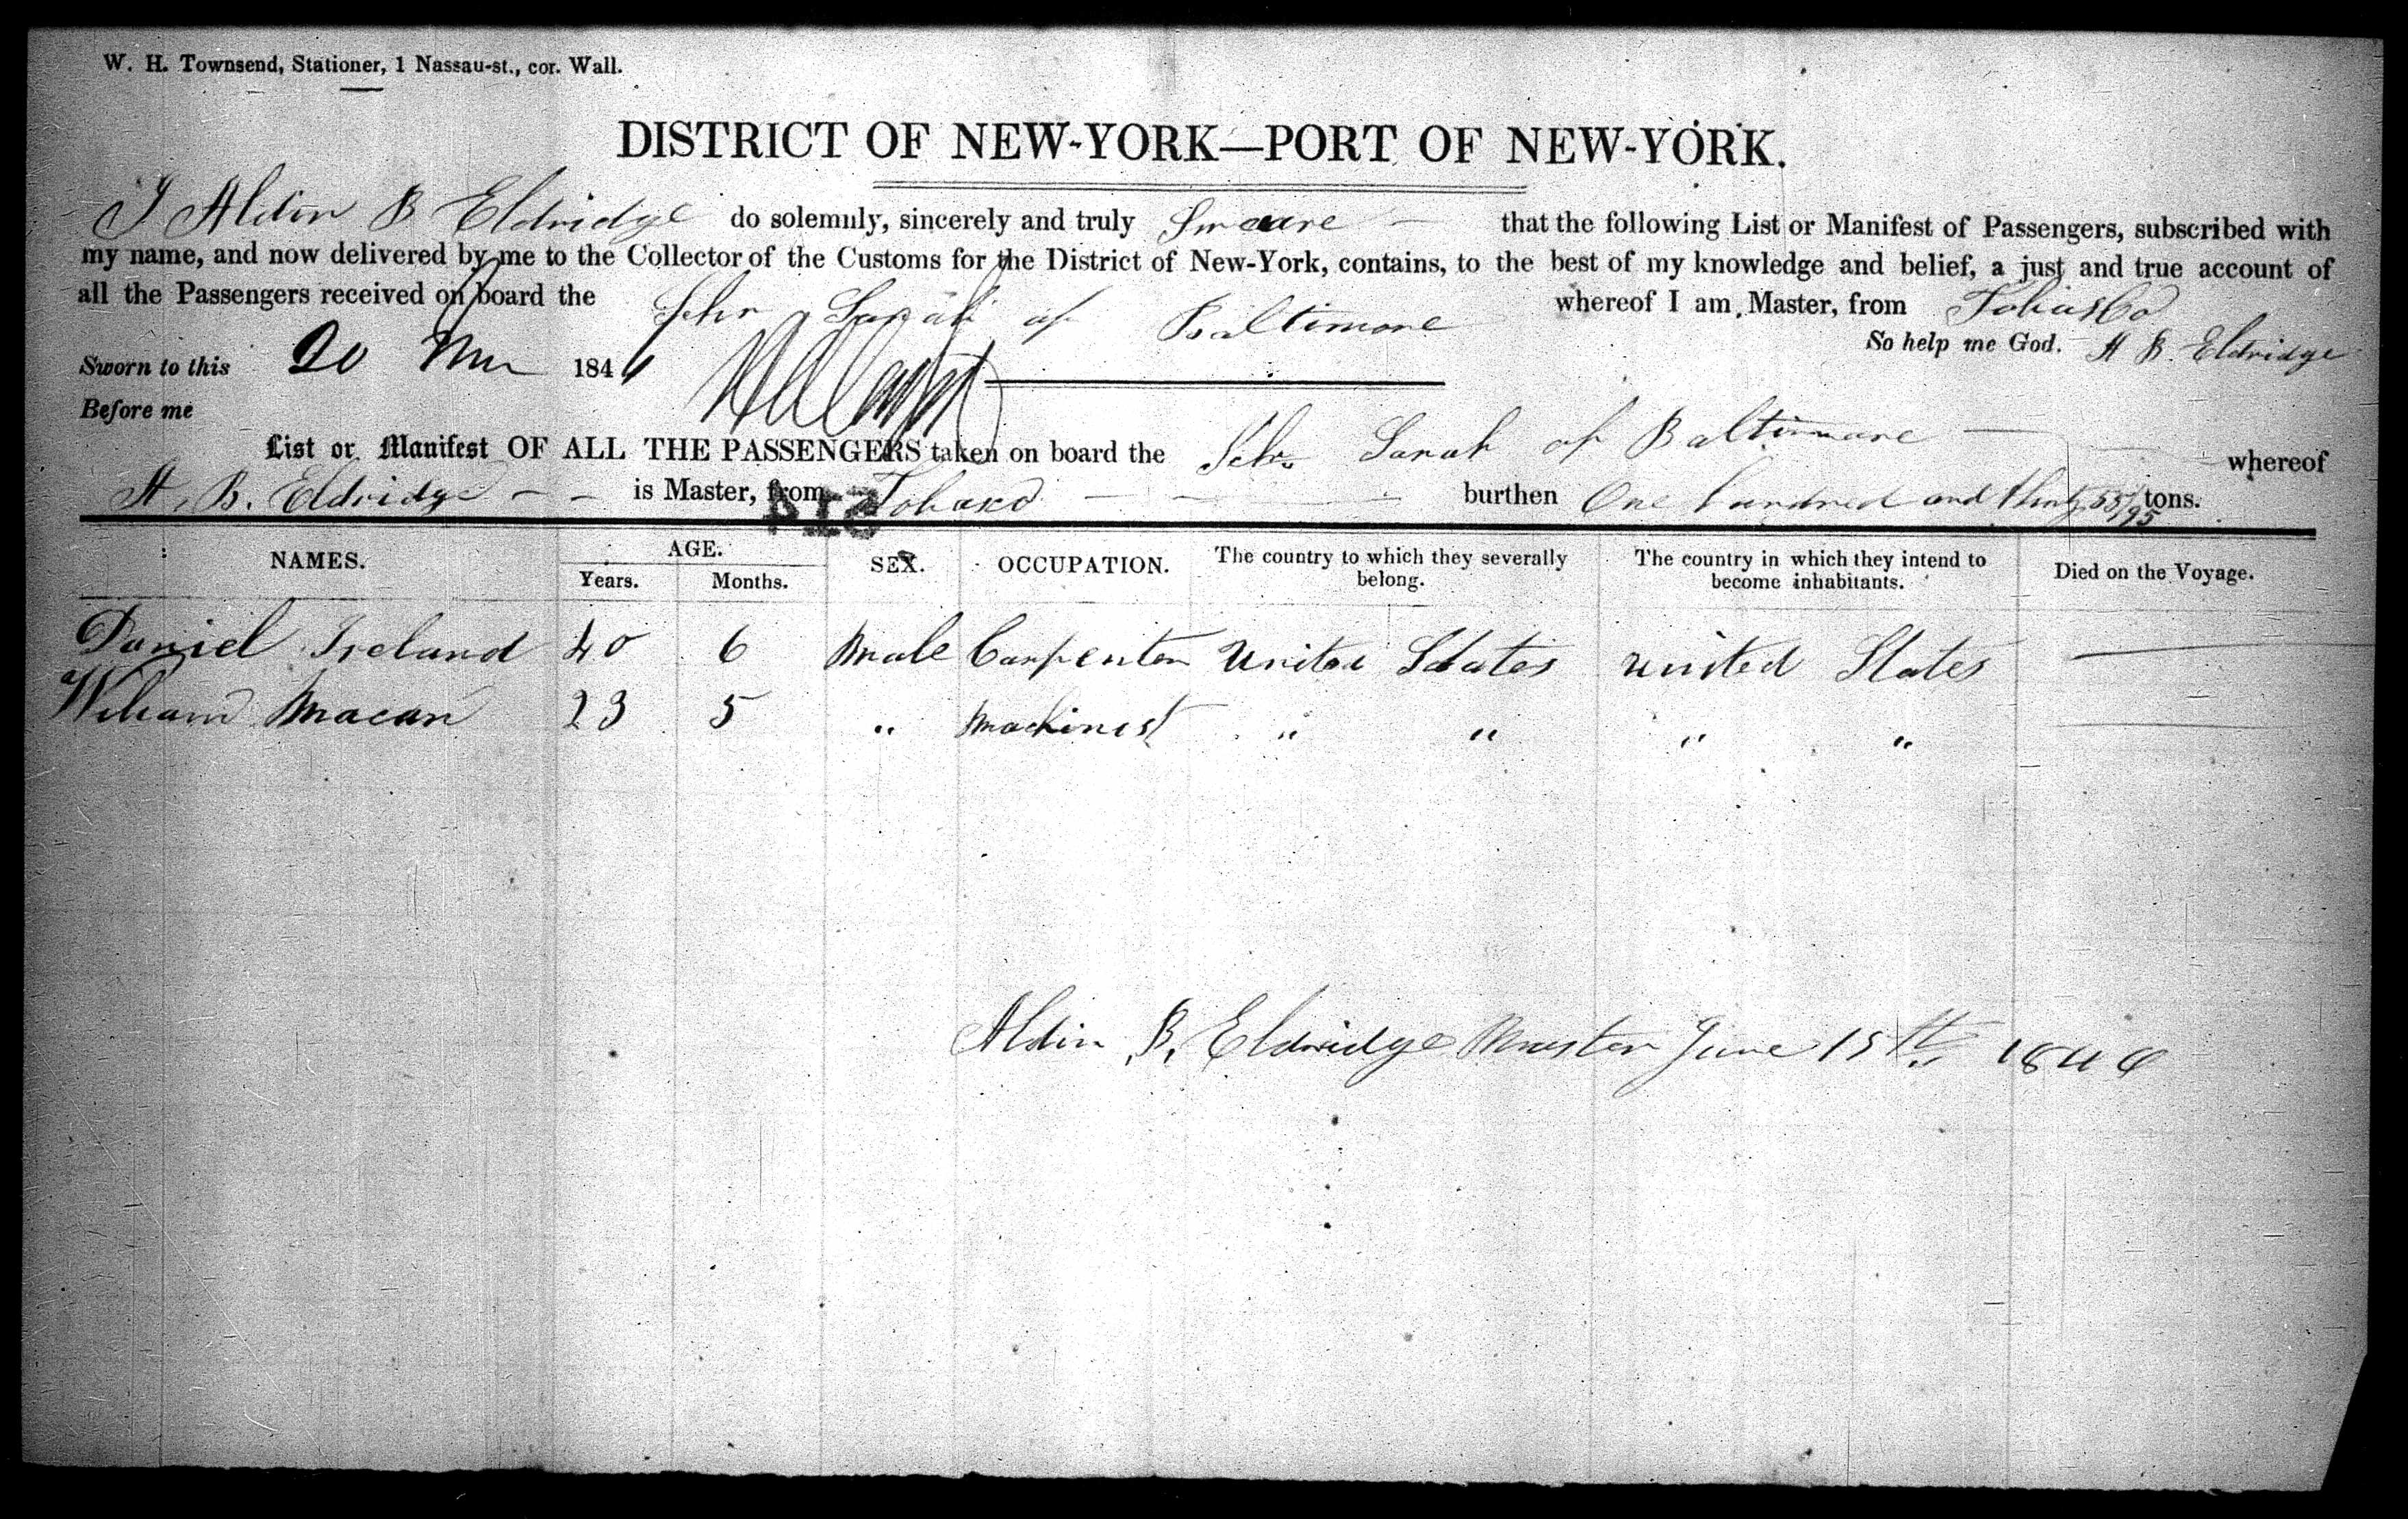 W. H. Townsend, Stationer, 1 Nassau-st., cor. Wall.
DISTRICT OF NEW-YORK—PORT OF NEW-YORK.
I Aldin B Eldridge do solemnly, sincerely and truly that the following List or Manifest of Passengers, subscribed with
my name, and now delivered by me to the Collector of the Customs for the District of New-York, contains, to the best of my knowledge and belief, a just and true account of
all the Passengers received on board the Schr Sarah of Baltimore whereof I am Master, from
So help me God. A B. Eldridge
Sworn to this 20 184
Before me
List or Manifest OF ALL THE PASSENGERS taken on board the Schr Sarah of Baltimore whereof
A. B. Eldridge is Master, from burthen One hundred and thirty 55/95 tons.
NAMES. AGE. Years. Months. SEX. OCCUPATION. The country to which they severally belong. The country in which they intend to become inhabitants. Died on the Voyage.
Daniel Ireland 40 6 Male Carpenter United States United States
William Macan 23 5 " Machinist " " " "
Aldin B. Eldridge Master June 15th 1846